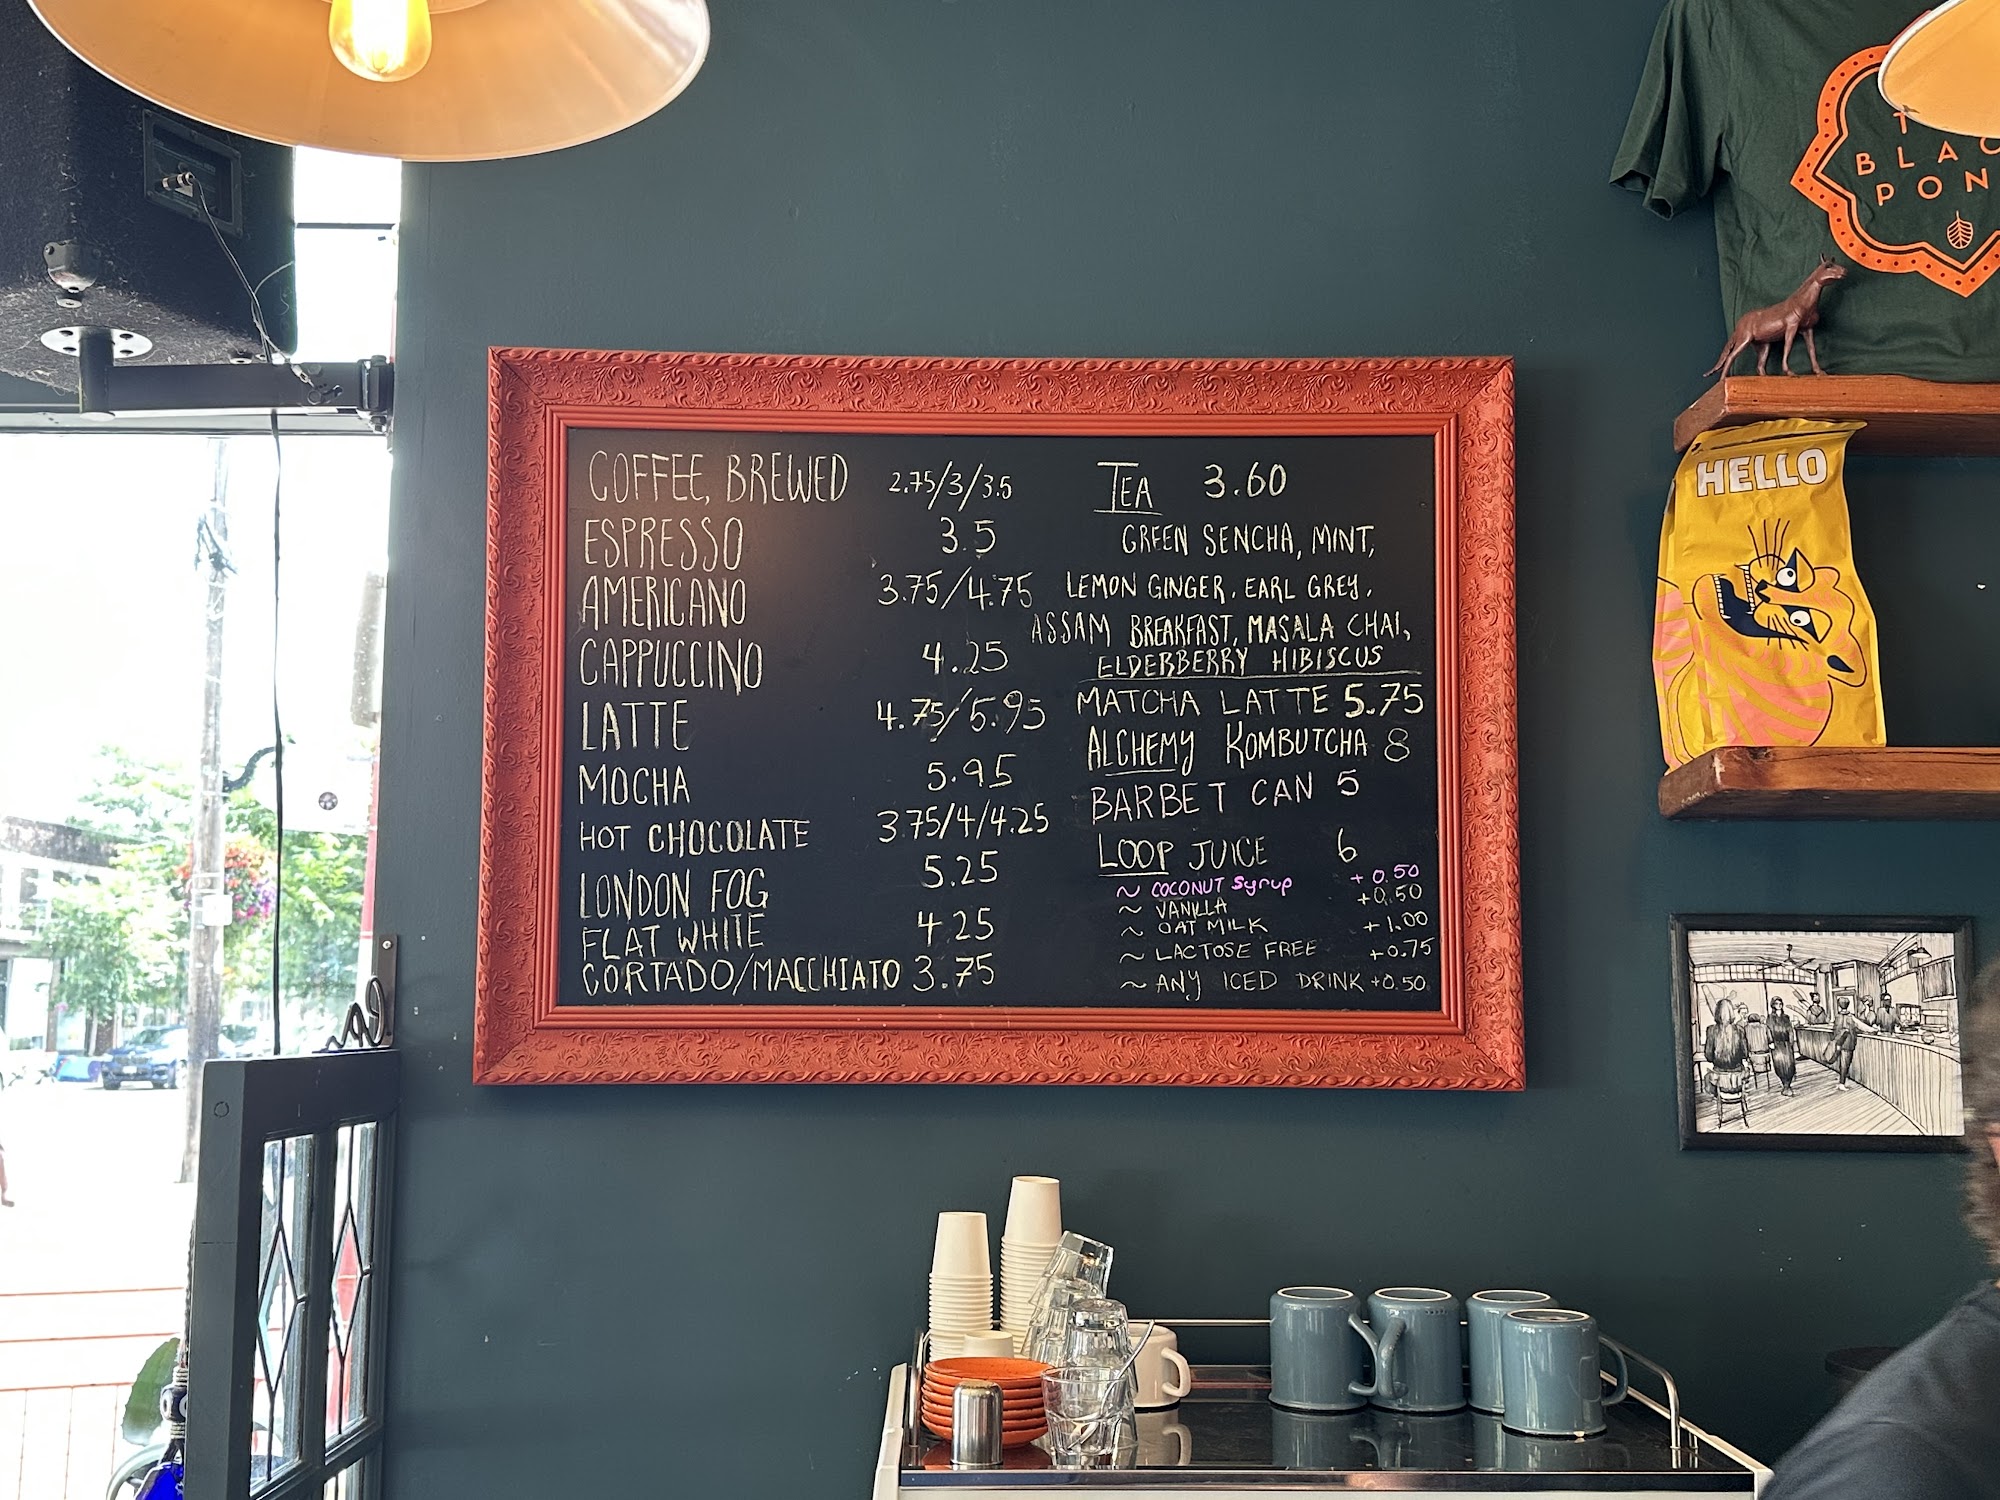 COFFEE, BREWED 2.75/3/3.5
ESPRESSO 3.5
AMERICANO 3.75/4.75
CAPPUCCINO 4.25
LATTE 4.75/5.95
MOCHA 5.95
HOT CHOCOLATE 3.75/4/4.25
LONDON FOG 5.25
FLAT WHITE 4.25
CORTADO/MACCHIATO 3.75
TEA 3.60
GREEN SENCHA, MINT,
LEMON GINGER, EARL GREY,
ASSAM BREAKFAST, MASALA CHAI,
ELDERBERRY HIBISCUS
MATCHA LATTE 5.75
ALCHEMY KOMBUTCHA 8
BARBET CAN 5
LOOP JUICE 6
~ COCONUT Syrup +0.50
~ VANILLA +0.50
~ OAT MILK +1.00
~ LACTOSE FREE +0.75
~ ANY ICED DRINK +0.50
HELLO